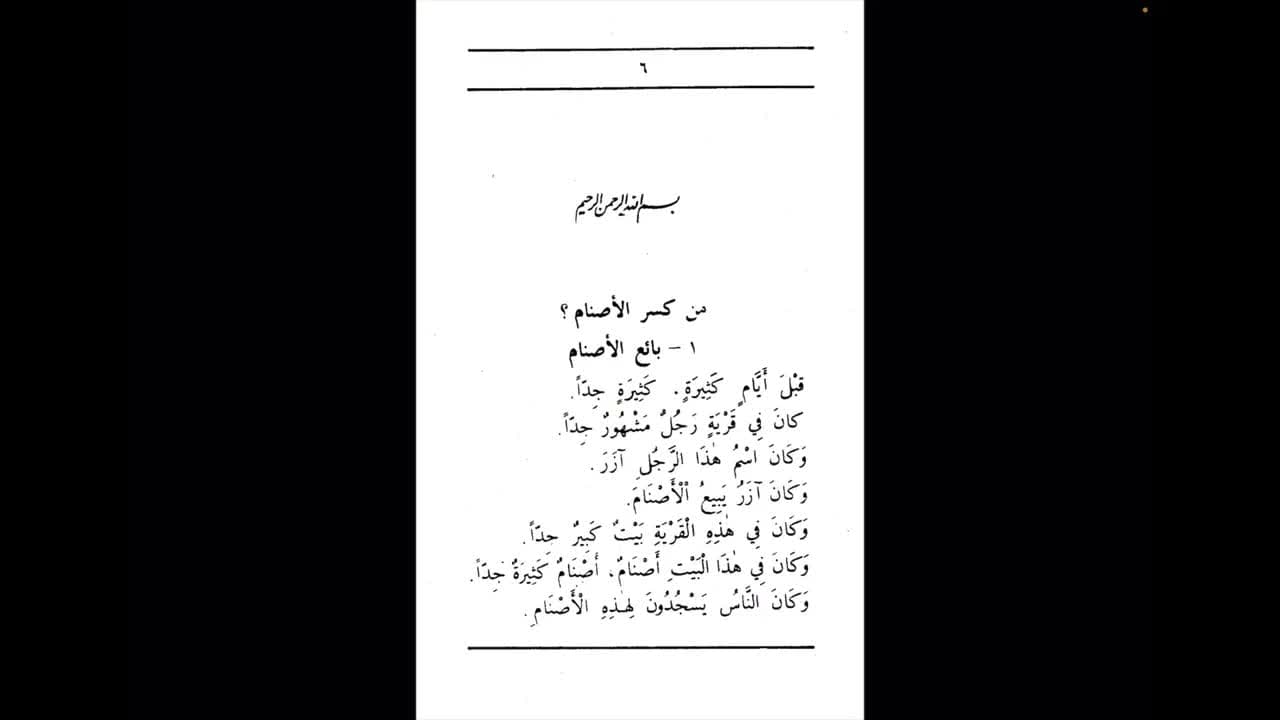 ٦
بسم الله الرحمن الرحيم
من كسر الأصنام ؟
١ - بائع الأصنام
قَبْلَ أَيَّامٍ كَثِيرَةٍ. كَثِيرَةٍ جِدّاً.
كانَ فِي قَرْيَةٍ رَجُلٌ مَشْهُورٌ جِدّاً.
وَكَانَ اسْمُ هٰذَا الرَّجُلِ آزَرَ.
وَكَانَ آزَرُ يَبِيعُ الْأَصْنَامَ.
وَكَانَ فِي هٰذِهِ الْقَرْيَةِ بَيْتٌ كَبِيرٌ جِدّاً.
وَكَانَ فِي هٰذَا الْبَيْتِ أَصْنَامٌ، أَصْنَامٌ كَثِيرَةٌ جِدّاً.
وَكَانَ النَّاسُ يَسْجُدُونَ لِهٰذِهِ الْأَصْنَامِ.